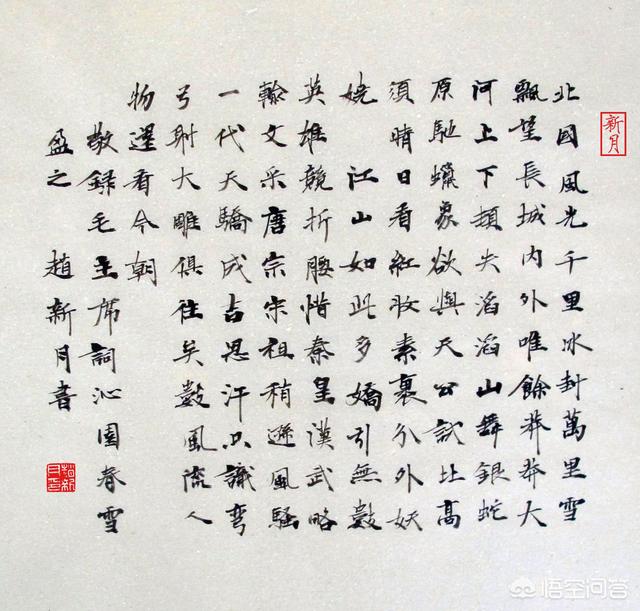 新月
北國風光千里冰封萬里雪
飄望長城內外唯餘莽莽大
河上下頓失滔滔山舞銀蛇
原馳蠟象欲與天公試比高
須晴日看紅妝素裹分外妖
嬈 江山如此多嬌引無數
英雄競折腰惜秦皇漢武略
輸文采唐宗宋祖稍遜風騷
一代天驕成吉思汗只識彎
弓射大雕俱往矣數風流人
物還看今朝
敬錄毛主席詞沁園春雪
盈之 趙新月書
趙新月印
悟空问答